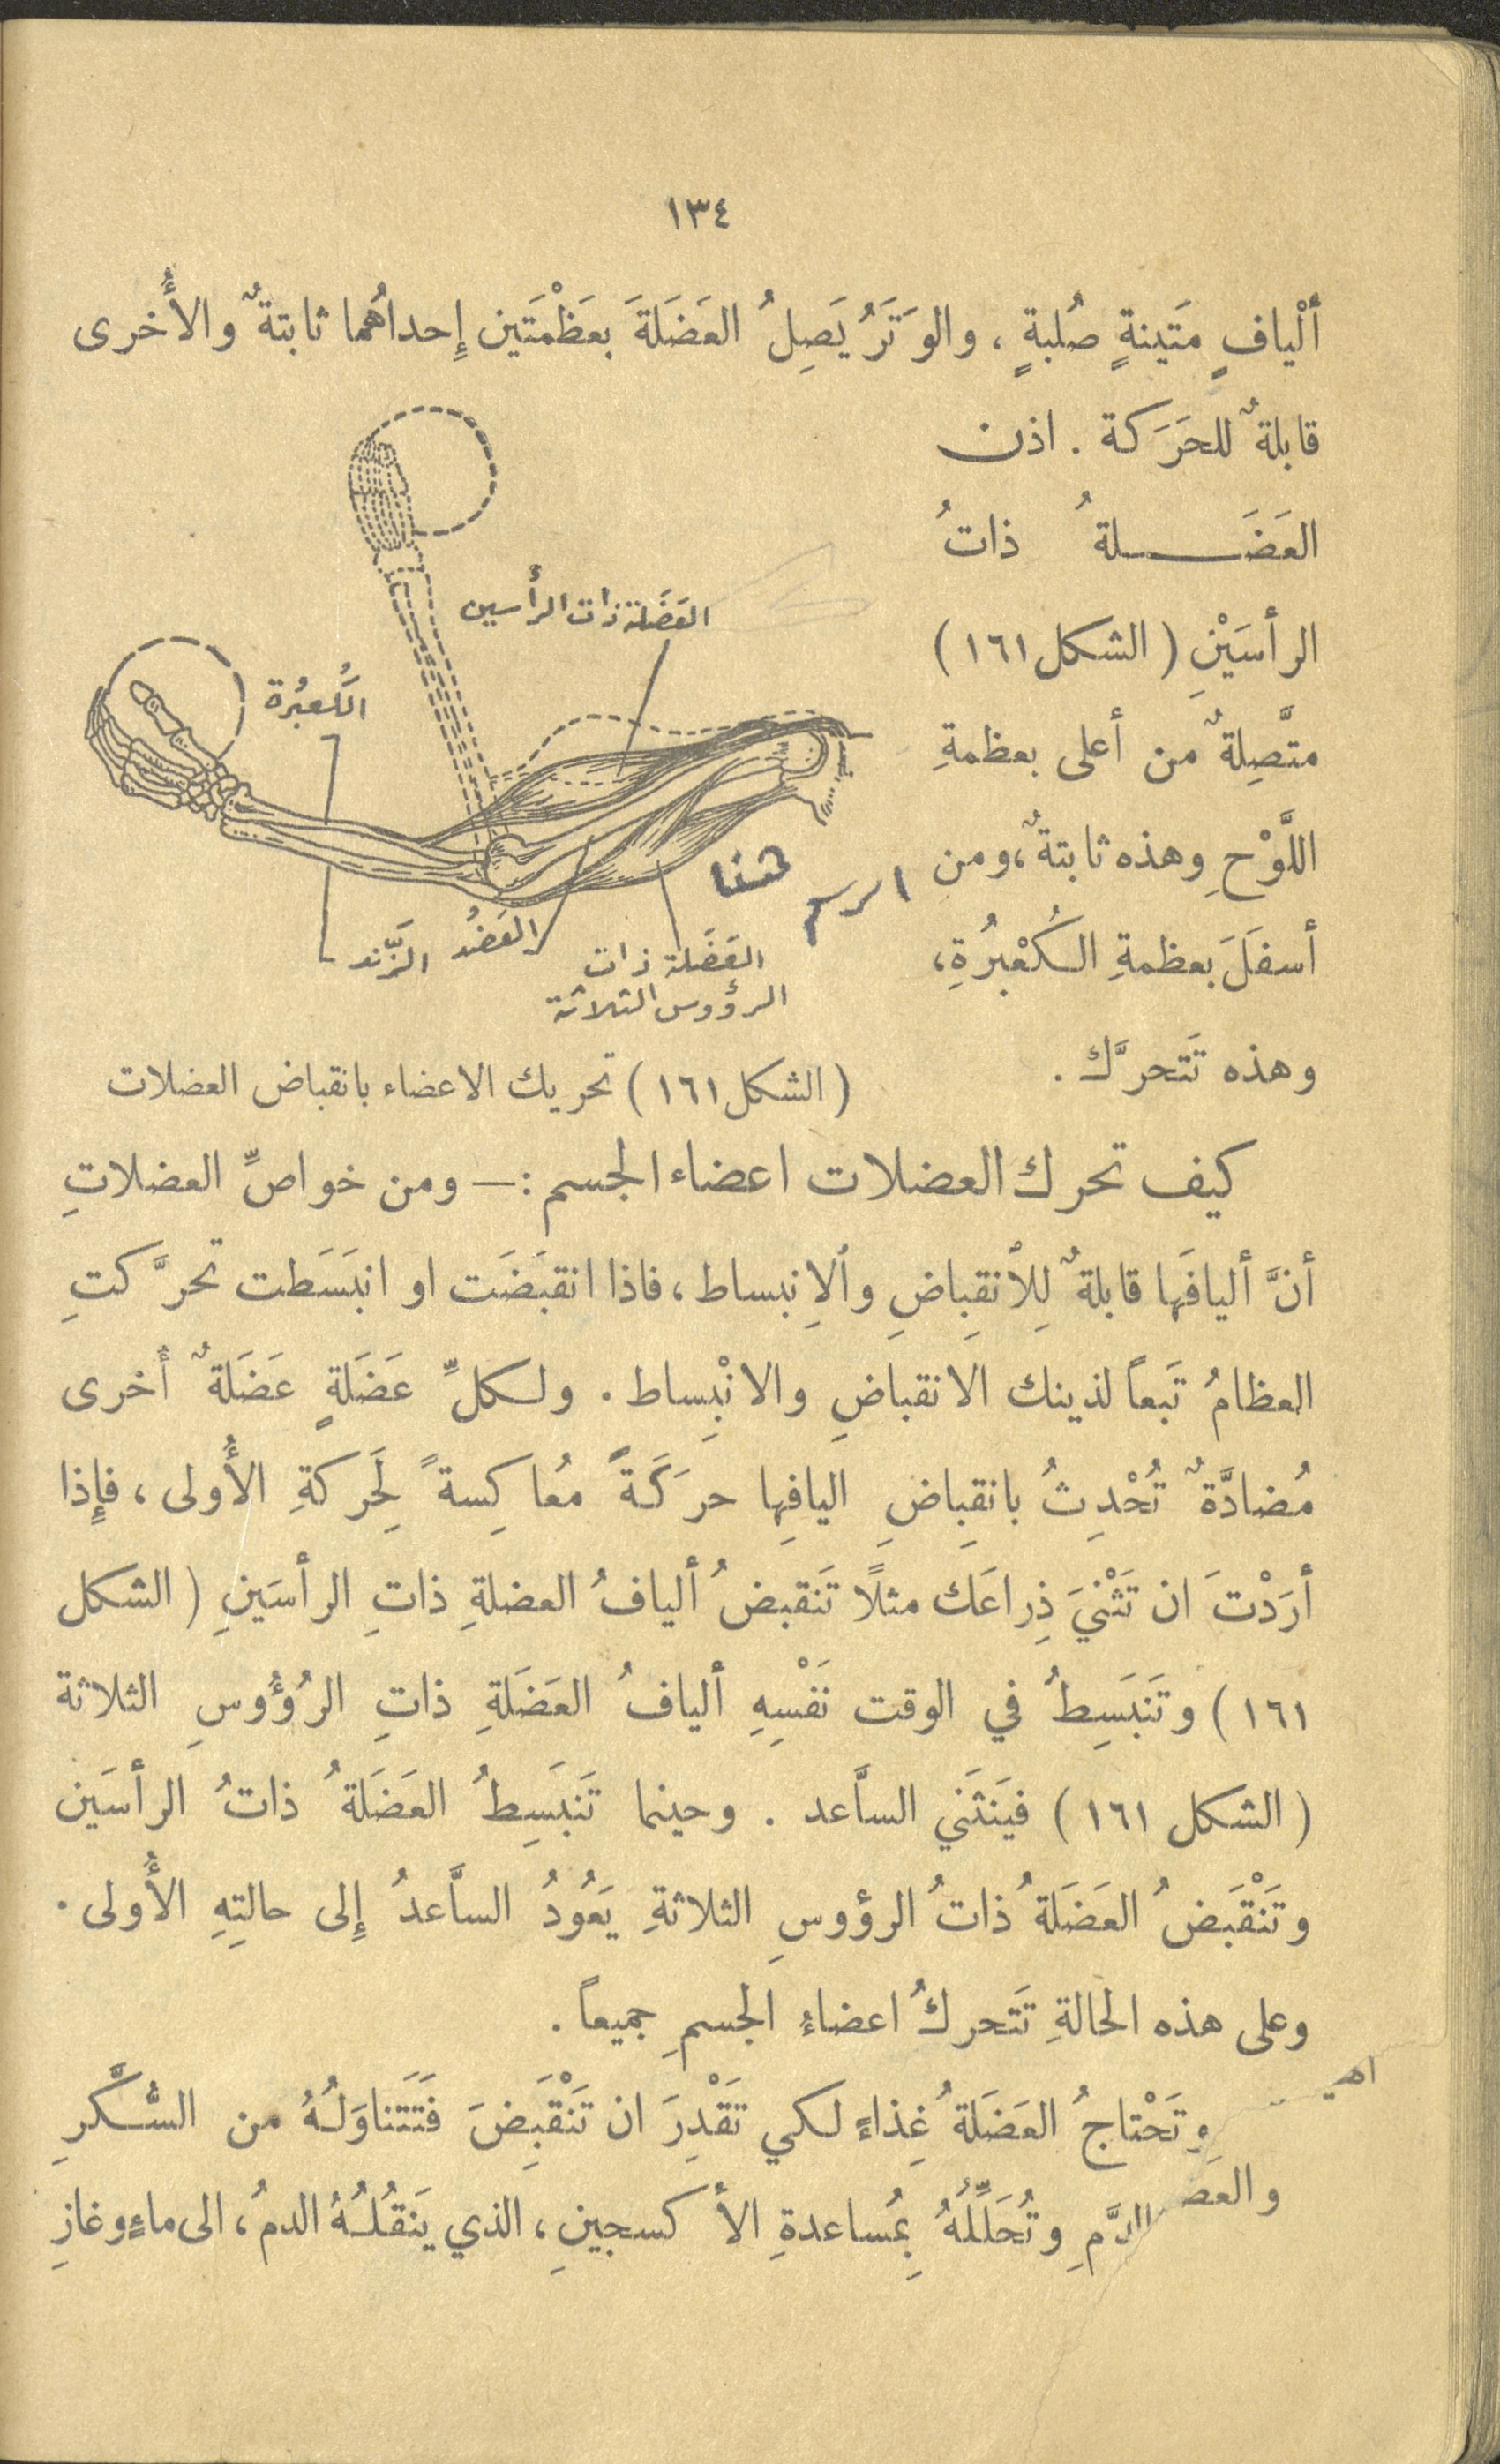 ١٣٤
ألْيافٍ مَتَينةٍ صُلبةٍ ، والوَتَرُ يَصِلُ العَضَلَةَ بعَظْمَتَين إِحداهُما ثابتةٌ والأُخرى
قابلةٌ للحَرَكة . اذن
العَضَــلةُ ذاتُ
الرأسَيْنِ ( الشكل ١٦١ )
متَّصِلةٌ من أعلى بعظمةِ
اللَّوْحِ وهذه ثابتةٌ ، ومن
أسفَلَ بعظمةِ الكُعْبُرُةِ،
وهذه تَتحرَّك .
العَضَلة ذات الرأسين
الكُعبُرة
الرسم هنا
العَضُد
الزَّند
العَضَلة ذات
الرؤوس الثلاثة
( الشكل ١٦١ ) تحريك الاعضاء بانقباض العضلات
كيف تحرك العضلات اعضاء الجسم : — ومن خواصِّ العضلاتِ
أنَّ أليافَها قابلةٌ لِلاْنقِباضِ والاِنبساط ، فاذا انقبَضَت او انبَسَطت تحرَّكتِ
العظامُ تَبَعاً لذينك الانقباضِ والانْبِساط . ولكلِّ عَضَلَةٍ عَضَلَةٌ أُخرى
مُضادَّةٌ تُحْدِثُ بانقِباضِ اليافِها حرَكَةً مُعاكِسةً لِحَركةِ الأُولى ، فإِذا
أرَدْتَ ان تَثْنيَ ذِراعَك مثلاً تَنقبضُ أليافُ العضلةِ ذاتِ الرأسَينِ ( الشكل
١٦١ ) وتَنبَسِطُ في الوقت نَفْسِهِ أليافُ العَضَلَةِ ذاتِ الرُؤُوسِ الثلاثة
( الشكل ١٦١ ) فيَنثَني السَّاعد . وحينما تَنبَسِطُ العَضَلَةُ ذاتُ الرأسَين
وتَنْقَبَضُ العَضَلَةُ ذاتُ الرؤوسِ الثلاثةِ يَعُودُ السَّاعدُ إِلى حالتِهِ الأُولى .
وعلى هذه الحالةِ تَتحركُ اعضاءُ الجسمِ جميعاً .
اهي
وتَحْتاجُ العَضَلَةُ غِذاءً لكي تَقْدِرَ ان تَنْقَبِضَ فَتَتَناوَلُهُ من السُّكَّرِ
والعض
الدَّمِ وتُحَلِّلُهُ بِمُساعدةِ الأكسجينِ ، الذي يَنقُلُهُ الدمُ ، الى ماءٍ وغازِ